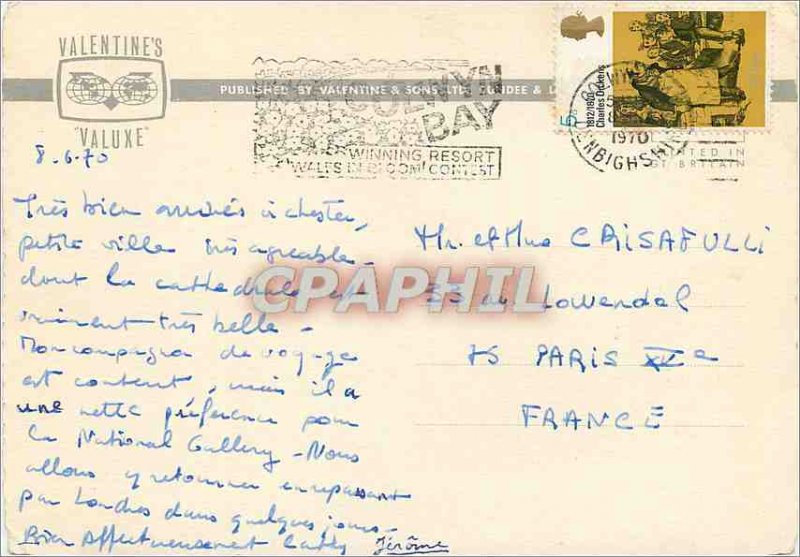 VALENTINE'S
"VALUXE"
PUBLISHED BY VALENTINE & SONS LTD. DUNDEE &
COLWYN
BAY
WINNING RESORT
WALES IN BLOOM CONTEST
1812/1870
Charles Dickens
5
1970
DENBIGHSHIRE
PRINTED IN
GT. BRITAIN
8.6.70
Très bien arrivés à Chester,
petite ville très agréable -
dont la cathédrale est
vraiment très belle -
Mon compagnon de voyage
est content, mais il a
une nette préférence pour
la National Gallery - Nous
allons y retourner en repassant
par Londres dans quelques jours -
Bien Affectueusement
Jérôme
Mr. et Mme CRISAFULLI
33 av Lowendal
75 PARIS XVe
FRANCE
CPAPHIL